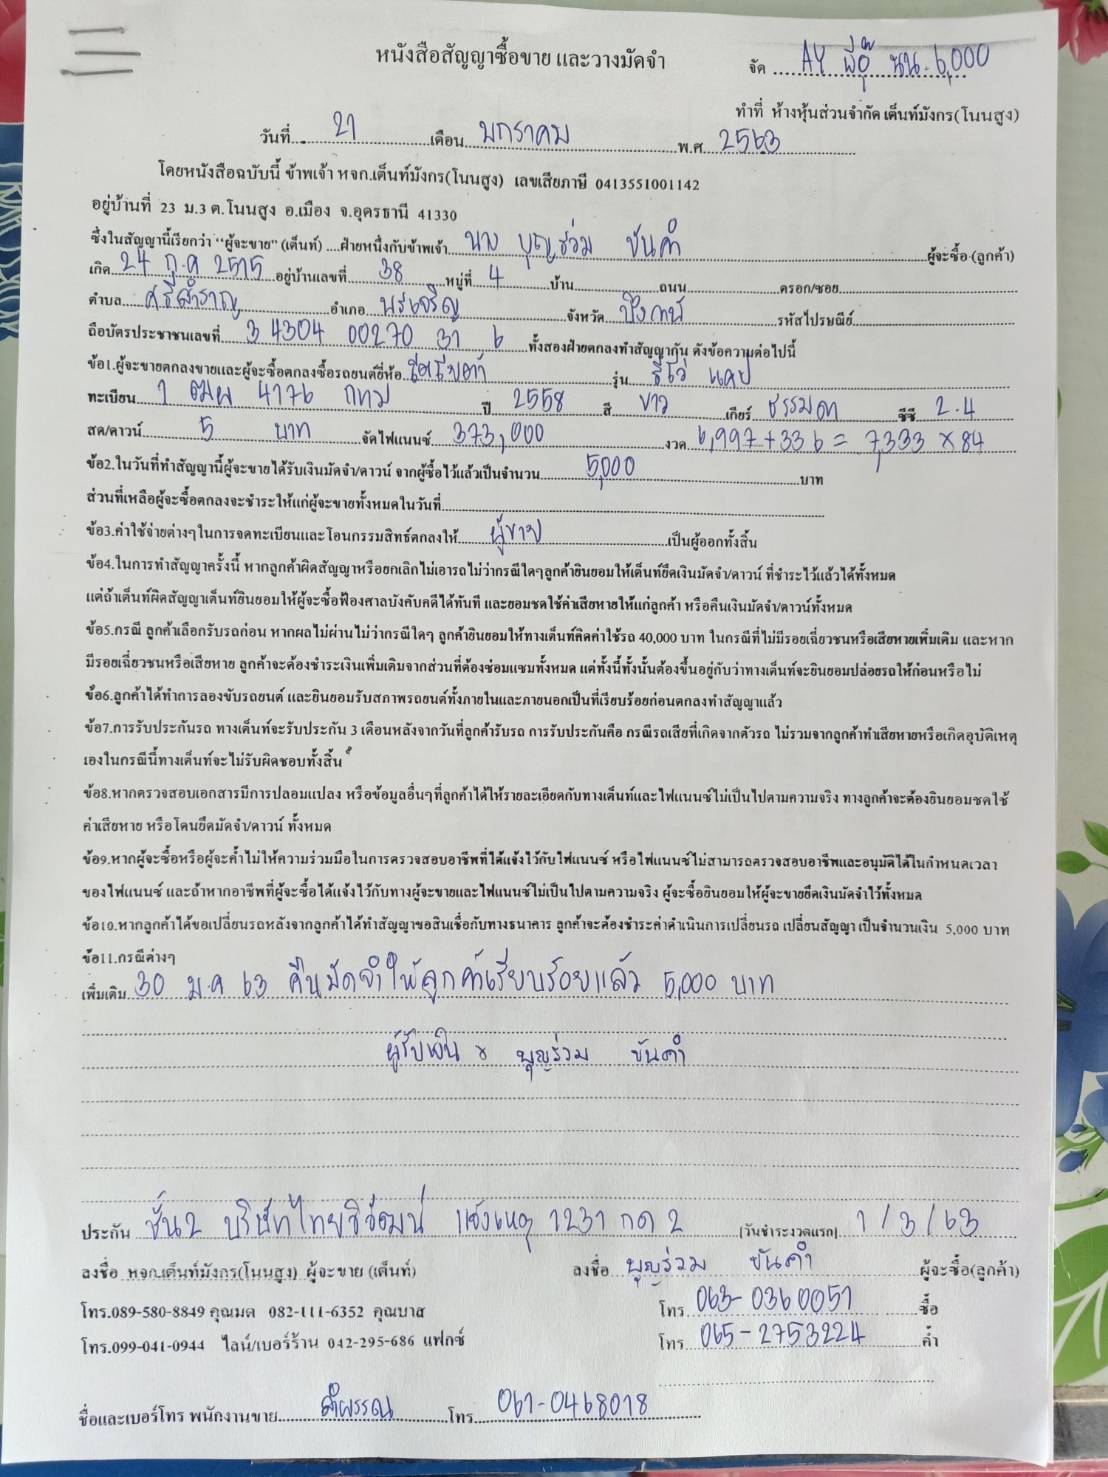 หนังสือสัญญาซื้อขาย และวางมัดจำ
จัด AY พี่อุ๊ นน. 6,000
ทำที่ ห้างหุ้นส่วนจำกัด เต็นท์มังกร(โนนสูง)
วันที่ 21 เดือน มกราคม พ.ศ 2563
โดยหนังสือฉบับนี้ ข้าพเจ้า หจก.เต็นท์มังกร(โนนสูง) เลขเสียภาษี 0413551001142
อยู่บ้านที่ 23 ม.3 ต.โนนสูง อ.เมือง จ.อุดรธานี 41330
ซึ่งในสัญญานี้เรียกว่า "ผู้จะขาย" (เต็นท์) ....ฝ่ายหนึ่งกับข้าพเจ้า นาง บุญร่วม ขันคำ ผู้จะซื้อ (ลูกค้า)
เกิด 24 ก.ค 2515 อยู่บ้านเลขที่ 38 หมู่ที่ 4 บ้าน ถนน ตรอก/ซอย
ตำบล ศรีสำราญ อำเภอ พรเจริญ จังหวัด บึงกาฬ รหัสไปรษณีย์
ถือบัตรประชาชนเลขที่ 3 4304 00270 31 6 ทั้งสองฝ่ายตกลงทำสัญญากัน ดังข้อความต่อไปนี้
ข้อ1.ผู้จะขายตกลงขายและผู้จะซื้อตกลงซื้อรถยนต์ยี่ห้อ รุ่น รีโว่ แคป
ทะเบียน 1 ฒผ 4176 กทม ปี 2558 สี ขาว เกียร์ ธรรมดา ซีซี 2.4
สด/ดาวน์ 5 บาท จัดไฟแนนซ์ 373,000 งวด 6,997+336 = 7,333 x 84
ข้อ2.ในวันที่ทำสัญญานี้ผู้จะขายได้รับเงินมัดจำ/ดาวน์ จากผู้ซื้อไว้แล้วเป็นจำนวน 5,000 บาท
ส่วนที่เหลือผู้จะซื้อตกลงจะชำระให้แก่ผู้จะขายทั้งหมดในวันที่
ข้อ3.ค่าใช้จ่ายต่างๆในการจดทะเบียนและโอนกรรมสิทธ์ตกลงให้ ผู้ขาย เป็นผู้ออกทั้งสิ้น
ข้อ4.ในการทำสัญญาครั้งนี้ หากลูกค้าผิดสัญญาหรือยกเลิกไม่เอารถไม่ว่ากรณีใดๆลูกค้ายินยอมให้เต็นท์ยึดเงินมัดจำ/ดาวน์ ที่ชำระไว้แล้วได้ทั้งหมด
แต่ถ้าเต็นท์ผิดสัญญาเต็นท์ยินยอมให้ผู้จะซื้อฟ้องศาลบังคับคดีได้ทันที และยอมชดใช้ค่าเสียหายให้แก่ลูกค้า หรือคืนเงินมัดจำ/ดาวน์ทั้งหมด
ข้อ5.กรณี ลูกค้าเลือกรับรถก่อน หากผลไม่ผ่านไม่ว่ากรณีใดๆ ลูกค้ายินยอมให้ทางเต็นท์คิดค่าใช้รถ 40,000 บาท ในกรณีที่ไม่มีรอยเฉี่ยวชนหรือเสียหายเพิ่มเติม และหาก
มีรอยเฉี่ยวชนหรือเสียหาย ลูกค้าจะต้องชำระเงินเพิ่มเติมจากส่วนที่ต้องซ่อมแซมทั้งหมด แต่ทั้งนี้ทั้งนั้นต้องขึ้นอยู่กับว่าทางเต็นท์จะยินยอมปล่อยรถให้ก่อนหรือไม่
ข้อ6.ลูกค้าได้ทำการลองขับรถยนต์ และยินยอมรับสภาพรถยนต์ทั้งภายในและภายนอกเป็นที่เรียบร้อยก่อนตกลงทำสัญญาแล้ว
ข้อ7.การรับประกันรถ ทางเต็นท์จะรับประกัน 3 เดือนหลังจากวันที่ลูกค้ารับรถ การรับประกันคือ กรณีรถเสียที่เกิดจากตัวรถ ไม่รวมจากลูกค้าทำเสียหายหรือเกิดอุบัติเหตุ
เองในกรณีนี้ทางเต็นท์จะไม่รับผิดชอบทั้งสิ้น
ข้อ8.หากตรวจสอบเอกสารมีการปลอมแปลง หรือข้อมูลอื่นๆที่ลูกค้าได้ให้รายละเอียดกับทางเต็นท์และไฟแนนซ์ไม่เป็นไปตามความจริง ทางลูกค้าจะต้องยินยอมชดใช้
ค่าเสียหาย หรือโดนยึดมัดจำ/ดาวน์ ทั้งหมด
ข้อ9.หากผู้จะซื้อหรือผู้จะค้ำไม่ให้ความร่วมมือในการตรวจสอบอาชีพที่ได้แจ้งไว้กับไฟแนนซ์ หรือไฟแนนซ์ไม่สามารถตรวจสอบอาชีพและอนุมัติได้ในกำหนดเวลา
ของไฟแนนซ์ และถ้าหากอาชีพที่ผู้จะซื้อได้แจ้งไว้กับทางผู้จะขายและไฟแนนซ์ไม่เป็นไปตามความจริง ผู้จะซื้อยินยอมให้ผู้จะขายยึดเงินมัดจำไว้ทั้งหมด
ข้อ10.หากลูกค้าได้ขอเปลี่ยนรถหลังจากลูกค้าได้ทำสัญญาขอสินเชื่อกับทางธนาคาร ลูกค้าจะต้องชำระค่าดำเนินการเปลี่ยนรถ เปลี่ยนสัญญา เป็นจำนวนเงิน 5,000 บาท
ข้อ11.กรณีต่างๆ
เพิ่มเติม 30 ม.ค 63 คืนมัดจำให้ลูกค้าเรียบร้อยแล้ว 5,000 บาท
ผู้รับเงิน x บุญร่วม ขันคำ
ประกัน ชั้น2 บริษัทไทยวิวัฒน์ แจ้งเหตุ 1231 กด 2 (วันชำระงวดแรก) 1/3/63
ลงชื่อ หจก.เต็นท์มังกร(โนนสูง) ผู้จะขาย (เต็นท์) ลงชื่อ บุญร่วม ขันคำ ผู้จะซื้อ(ลูกค้า)
โทร.089-580-8849 คุณมด 082-111-6352 คุณบาส โทร 063-0360051 ซื้อ
โทร.099-041-0944 ไลน์/เบอร์ร้าน 042-295-686 แฟกซ์ โทร 065-2753224 ค้ำ
ชื่อและเบอร์โทร พนักงานขาย อำพรรณ โทร 061-0468018